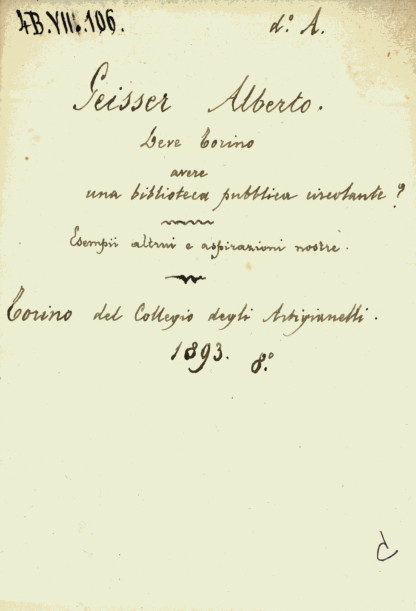 4B.VII.106.
d.º A.
Geisser Alberto.
Deve Torino
avere
una biblioteca pubblica circolante?
Esempii altrui e aspirazioni nostre.
Torino del Collegio degli Artigianelli.
1893. 8.º